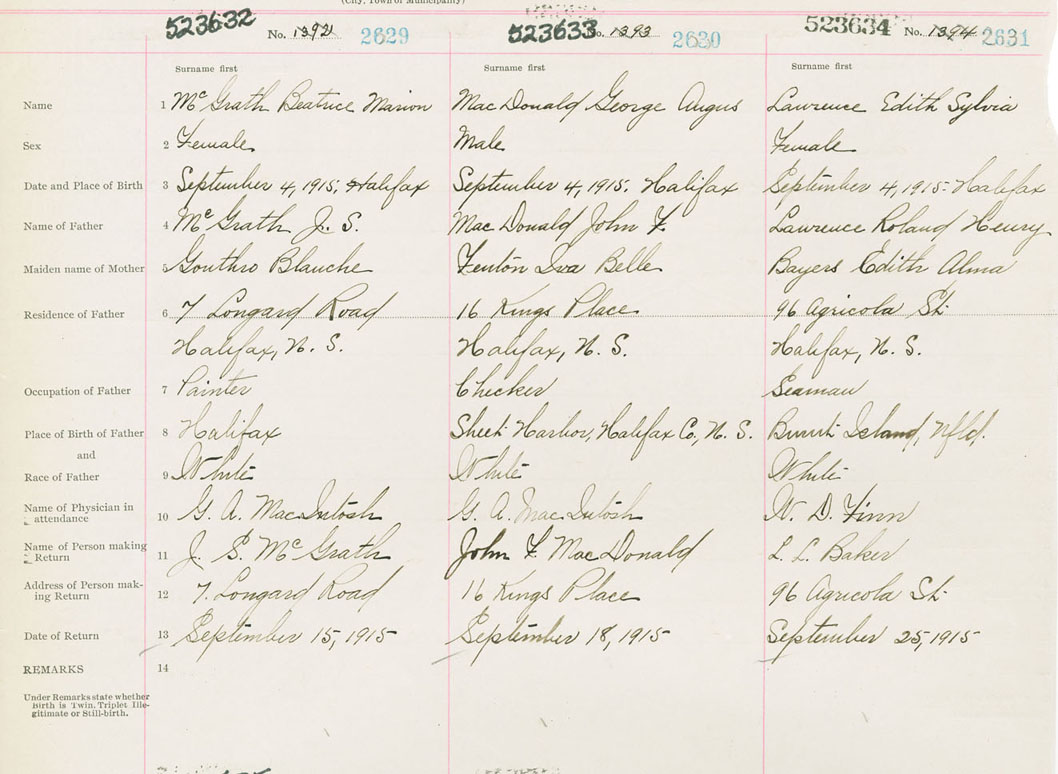 (City, Town or Municipality)
523632 No. 1392 2629 523633 No. 1393 2630 523634 No. 1394 2631
Surname first Surname first Surname first
Name 1 McGrath Beatrice Marion MacDonald George Angus Lawrence Edith Sylvia
Sex 2 Female Male Female
Date and Place of Birth 3 September 4, 1915. Halifax September 4, 1915. Halifax September 4, 1915. Halifax
Name of Father 4 McGrath J. S. MacDonald John F. Lawrence Roland Henry
Maiden name of Mother Gouthro Blanche Fenton Iva Belle Bayers Edith Alma
Residence of Father 6 7 Longard Road 16 Kings Place 96 Agricola St.
Halifax, N. S. Halifax, N. S. Halifax, N. S.
Occupation of Father 7 Painter Checker Seaman
Place of Birth of Father 8 Halifax Sheet Harbor, Halifax Co, N. S. Burnt Island, Nfld.
and
Race of Father 9 White White White
Name of Physician in
attendance 10 G. A. MacIntosh G. A. MacIntosh W. D. Finn
Name of Person making
Return 11 J. S. McGrath John F. MacDonald L. L. Baker
Address of Person mak-
ing Return 12 7. Longard Road 16 Kings Place 96 Agricola St.
Date of Return 13 September 15, 1915 September 18, 1915 September 25, 1915
REMARKS 14
Under Remarks state whether
Birth is Twin, Triplet Ille-
gitimate or Still-birth.